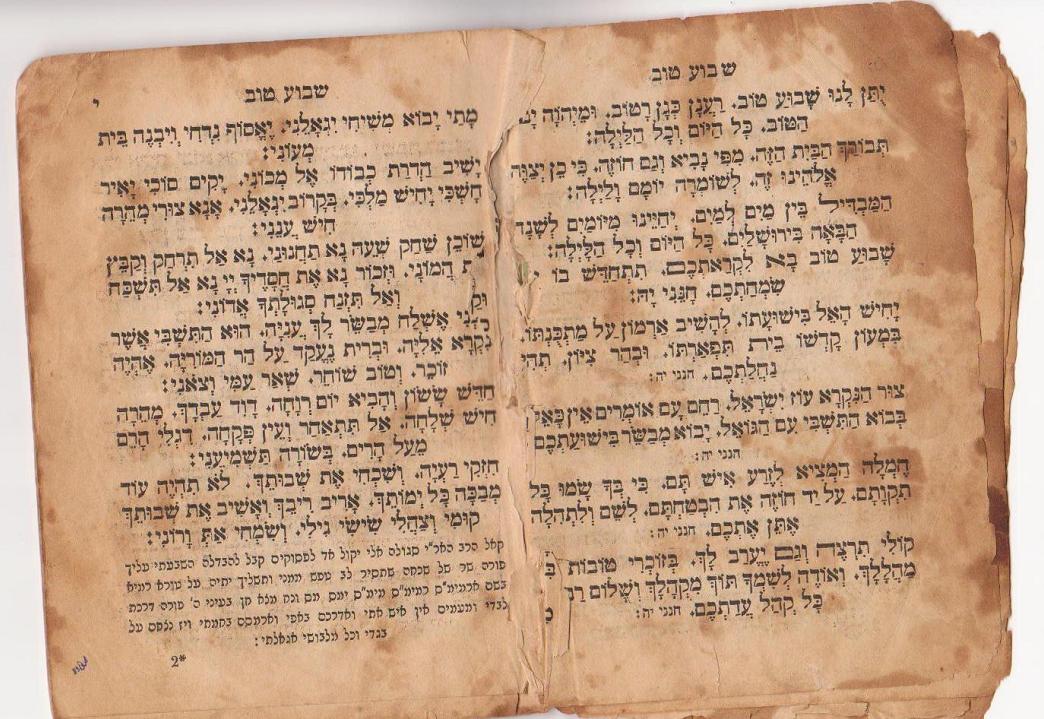 שבוע טוב
יִתֵּן לָנוּ שָׁבוּעַ טוֹב. רַעֲנָן כְּגַן רָטוֹב. וּמֵיְהֹוָה
הַטּוֹב. כָּל הַיּוֹם וְכָל הַלָּיְלָה:
תְּבוֹרַךְ הַבַּיִת הַזֶּה. מִפִּי נָבִיא וְגַם חוֹזֶה. כִּי כֵן יְצַוֶּה
אֱלֹהֵינוּ זֶה. לְשׁוֹמְרָהּ יוֹמָם וָלָיְלָה:
הַמַּבְדִּיל בֵּין מַיִם לְמַיִם. יְחַיֵּינוּ מִיּוֹמַיִם לְשָׁנָה
הַבָּאָה בִּירוּשָׁלַיִם. כָּל הַיּוֹם וְכָל הַלָּיְלָה:
שָׁבוּעַ טוֹב בָּא לִקְרַאתְכֶם. תִּתְחַדֵּשׁ בּוֹ
שִׂמְחַתְכֶם. חָנֵּנִי יָהּ:
יָחִישׁ הָאֵל בִּישׁוּעָתוֹ. לְהָשִׁיב אַרְמוֹן עַל מַתְכֻּנְתּוֹ.
בִּמְעוֹן קָדְשׁוֹ בֵּית תִּפְאַרְתּוֹ. וּבְהַר צִיּוֹן. תְּהִי
נַחֲלַתְכֶם. חנני יה:
צוּר הַנִּקְרָא עוֹז יִשְׂרָאֵל. רַחֵם עַם אוֹמְרִים אֵין כָּאֵל
בְּבוֹא הַתִּשְׁבִּי עִם הַגּוֹאֵל. יָבוֹא מְבַשֵּׂר בִּישׁוּעַתְכֶם
חנני יה:
חֶמְלָה הַמְצִיא לְזֶרַע אִישׁ תָּם. כִּי בְּךָ שָׂמוּ כָּל
תִּקְוָתָם. עַל יַד חוֹזֶה אֶת הִבְטַחְתָּם. לְשֵׁם וְלִתְהִלָּה
אֶתֵּן אֶתְכֶם. חנני יה:
קוֹלִי תִרְצֶה וְגַם יֶעֱרַב לָךְ. בְּזוֹכְרִי טוֹבוֹת
מַהֲלָלָךְ. וְאוֹדֶה לְשִׁמְךָ תּוֹךְ מַקְהֵלָךְ וְשָׁלוֹם רַב
כָּל קְהַל עֲדַתְכֶם. חנני יה:
שבוע טוב
י
מָתַי יָבוֹא מְשִׁיחִי יִגְאָלֵנִי. יֶאֱסוֹף נִדְחִי וְיִבְנֶה בֵּית
מְעוֹנִי:
יָשִׁיב הַדְרַת כְּבוֹדוֹ אֶל מְכוֹנִי. יָקִים סוּכִּי יָאִיר
חָשְׁכִּי יָחִישׁ מַלְכִּי. בְּקָרוֹב יִגְאָלֵנִי. אָנָּא צוּרִי מְהֵרָה
חִישׁ עֲנֵנִי:
שׁוֹכֵן שַׁחַק שְׁעֵה נָא תַחֲנוּנִי. נָא אַל תִּרְחַק וְקַבֵּץ
הֲמוֹנִי. וּזְכוֹר נָא אֶת חֲסָדֶיךָ יְיָ נָא אַל תִּשְׁכַּח
וְאַל תִּזְנַח סְגוּלָּתְךָ אֲדוֹנִי:
אֶשְׁלַח מְבַשֵּׂר לָךְ עֲנִיָּה. הוּא הַתִּשְׁבִּי אֲשֶׁר
נִקְרָא אֵלִיָּה. וּבְרִית נֶעֱקַד עַל הַר הַמּוֹרִיָּה. אֶהְיֶה
זוֹכֵר. וְטוֹב שׁוֹחֵר. שְׁאָר עַמִּי וְצֹאנִי:
חַדֵּשׁ שָׂשׂוֹן וְהָבִיא יוֹם רְוָחָה. דָּוִד עַבְדָּךְ. מְהֵרָה
חִישׁ שְׁלָחָה. אַל תִּתְאַחַר וְעַיִן פְּקָחָה. רַגְלֵי הָרֵם
מֵעַל הָרִים. בְּשׂוֹרָה תַּשְׁמִיעֵנִי:
חִזְקִי רַעְיָה. וְשִׁכְחִי אֶת שְׁבוּתֵךְ. לֹא תִהְיֶה עוֹד
מְבַכָּה כָּל יְמוֹתֵךְ. אָרִיב רִיבֵךְ וְאָשִׁיב אֶת שְׁבוּתֵךְ
קוּמִי וְצַהֲלִי שִׂישִׂי גִּילִי. וְשִׂמְחִי אַתְּ וָרוֹנִּי:
קאל הרב האר״י סגולה אלי יקול אד לפסוקים קבל להבדלה השבעתי עליך
פורה שר של שכחה שתסיר לב טפש ממני ותשליך יתיה על טורא רמיא
לבדי ומעמים אין איש אתי ואדרכם באפי וארמסם בחמתי ויז נצחם על
בגדי וכל מלבושי אגאלתי:
2*